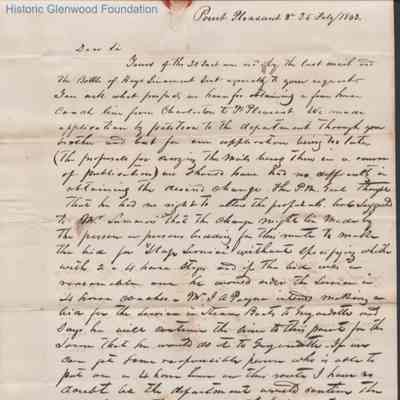 Historic Glenwood Foundation
Point Pleasant Va 25 July / 1843.
Dear Sir
Yours of the 20 Inst was rec'd by the last mail and
the Bottle of Hays Linament Sent agreeably to your request
You ask what prospects we have for obtaining a four horse
Coach line from Charleston to Pt Pleasant We made
application by petition to the department through your
brother and but for our application being to late
(the proposals for carrying the Mails being then in a course
of publication) we should have had no difficulty in
obtaining the desired change the P.M. Genl thought
that he had no right to alter the proposals but suggested
to Mr that the change might be made by
the person or persons bidding for this route to make
the bid for "Stage Service" without specifying whether
with 2 or 4 horse Stages and if the bid was a
reasonable one he would order the Service in
4 horse coaches Mr J A Payne intends making a
bid for the service in Steam Boats to Guyandotte and
Says he will continue the line to this point for the
Same that he would do it to Guyandotte If we
can get some responsible person who is able to
put on a 4 horse line on this route I have no
doubt but the department would sanction the